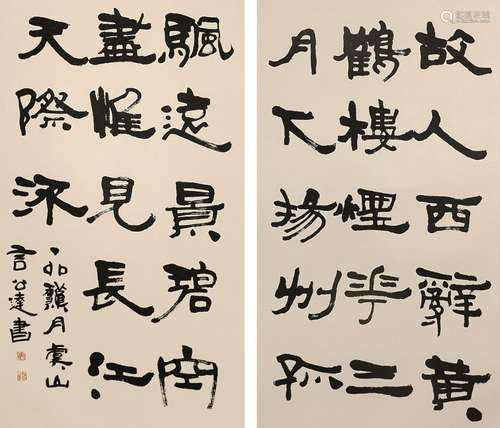 故人西辭黃
鶴樓煙華三
月下揚州孤
颿遠景碧空
盡惟見長江
天際流
丁卯臘月虞山
言公達書